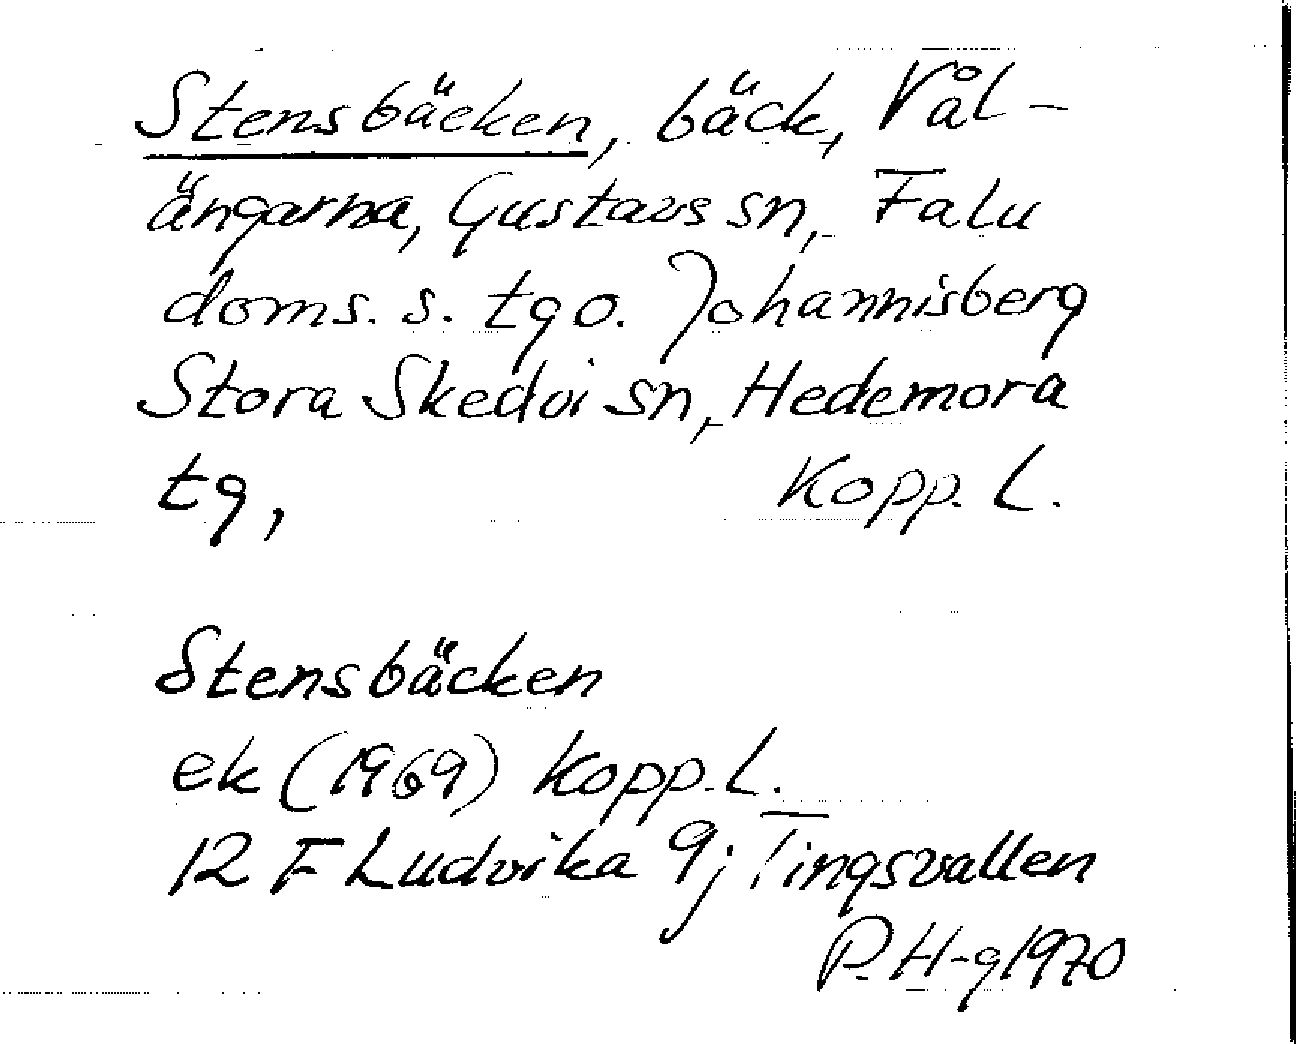 Stensbäcken, bäck, Vål-
ängarna, Gustavs sn, Falu
doms. s. tg o. Johannisberg
Stora Skedvi sn, Hedemora
tg, Kopp. L.
Stensbäcken
ek (1969) Kopp. L.
12 F Ludvika 9j Tingsvallen
P. H-g 1970